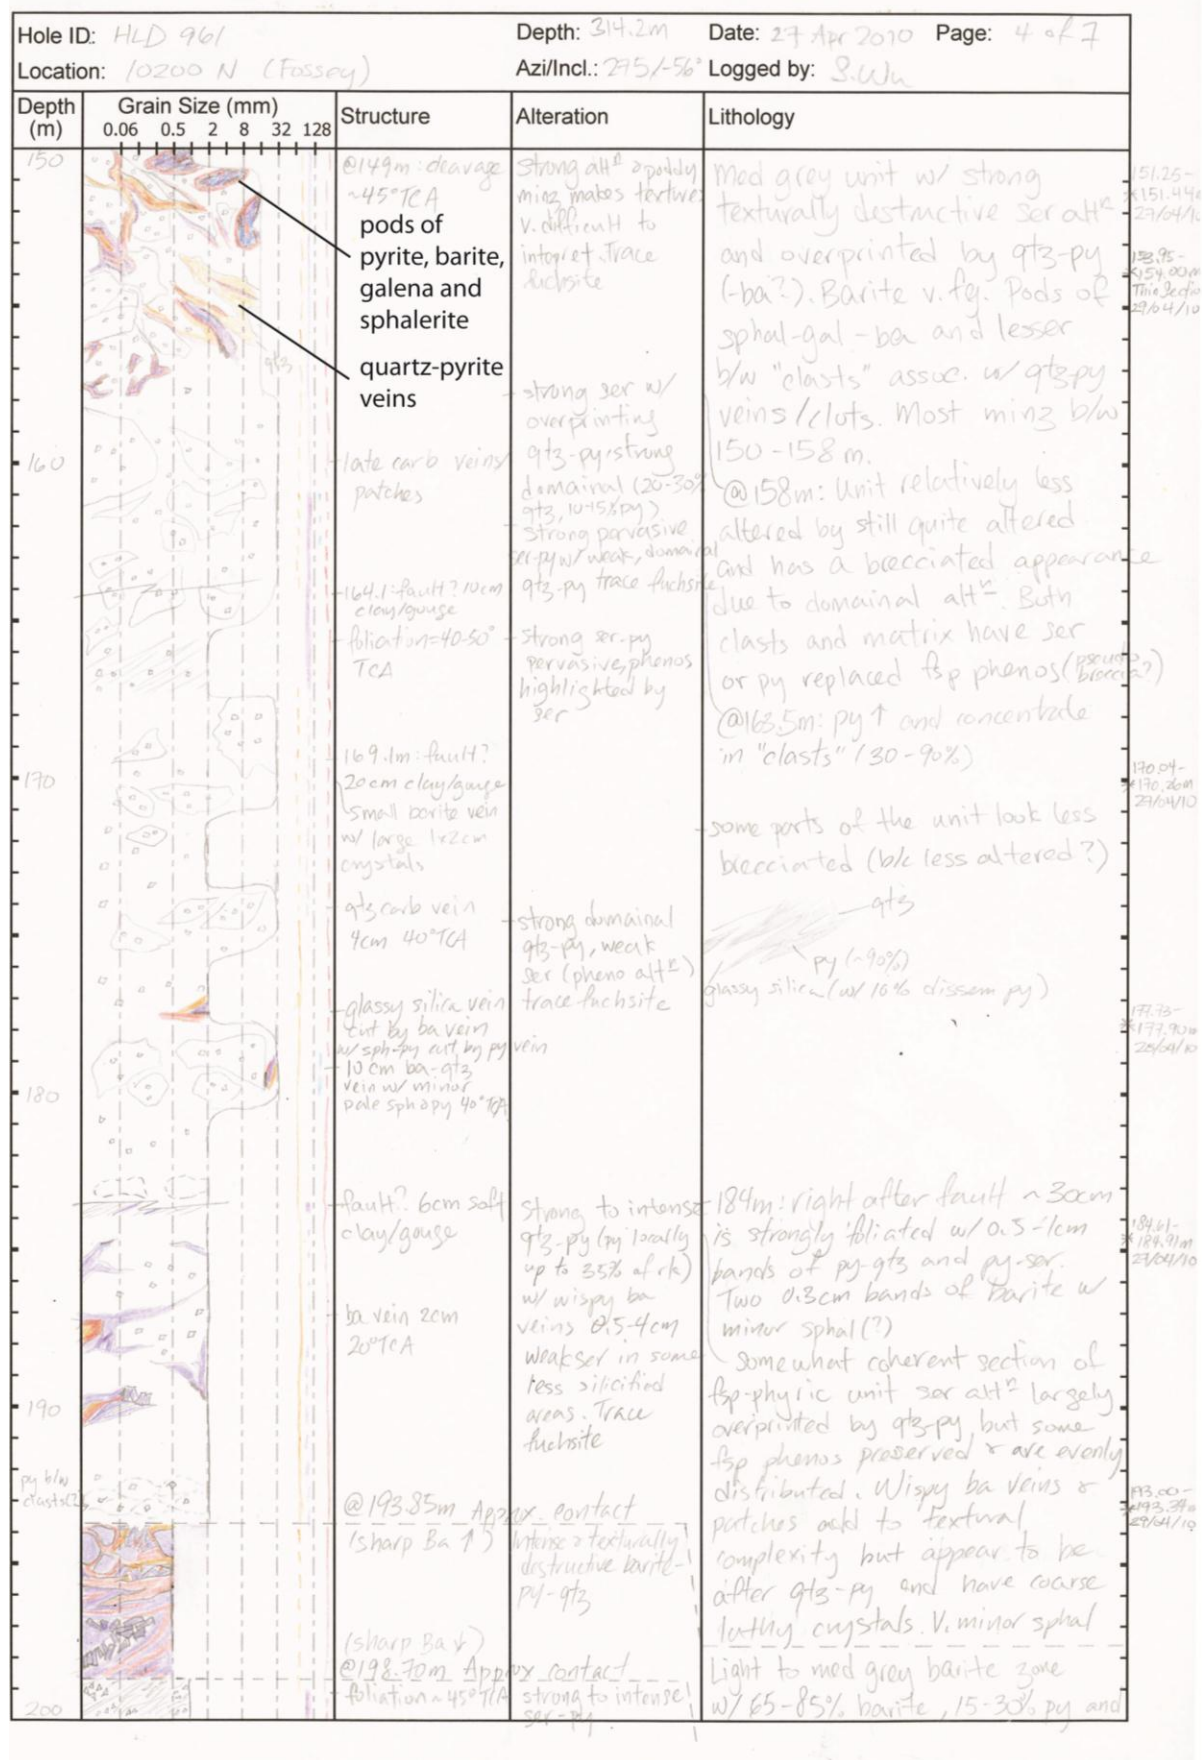 Hole ID: HLD 961 Depth: 314.2m Date: 27 Apr 2010 Page: 4 of 7
Location: 10200 N (Fossey) Azi/Incl.: 275/-56° Logged by: S.Wu
Depth (m)
Grain Size (mm)
0.06 0.5 2 8 32 128
Structure
Alteration
Lithology
150
160
170
180
190
py b/w
clasts
200
qtz
pods of
pyrite, barite,
galena and
sphalerite
quartz-pyrite
veins
@149m: cleavage
~45°TCA
late carb veins/
patches
164.1: fault? 10cm
clay/gouge
foliation=40-50°
TCA
169.1m: fault?
20cm clay/gouge
small barite vein
w/ large 1x2cm
crystals
qtz carb vein
4cm 40°TCA
glassy silica vein
cut by ba vein
w/ sph-py cut by py vein
10 cm ba-qtz
vein w/ minor
pale sph&py 40°TCA
fault? 6cm soft
clay/gouge
ba vein 2cm
20°TCA
@193.85m Approx. contact
(sharp Ba ↑)
(sharp Ba ↓)
@198.70m Approx contact
foliation ~45°TCA
strong altⁿ & poddy
minz makes textures
v. difficult to
interpret. Trace
fuchsite
strong ser w/
overprinting
qtz-py strong
domainal (20-30%
qtz, 10-15% py)
strong pervasive
ser-py w/ weak, domainal
qtz-py trace fuchsite
strong ser-py
pervasive, phenos
highlighted by
ser
strong domainal
qtz-py, weak
ser (pheno altⁿ)
trace fuchsite
strong to intense
qtz-py (py locally
up to 35% of rk)
w/ wispy ba
veins 0.5-4cm
weak ser in some
less silicified
areas. Trace
fuchsite
Intense & texturally
destructive barite-
py-qtz
strong to intense
ser-py.
Med grey unit w/ strong
texturally destrctive ser altⁿ
and overprinted by qtz-py
(-ba?). Barite v. fg. Pods of
sphal-gal-ba and lesser
b/w "clasts" assoc. w/ qtz-py
veins/clots. Most minz b/w
150-158 m.
@158m: Unit relatively less
altered by still quite altered
and has a brecciated appearance
due to domainal altⁿ. Both
clasts and matrix have ser
or py replaced fsp phenos (pseudo
breccia?)
@163.5m: py ↑ and concentrate
in "clasts" (30-90%)
some parts of the unit look less
brecciated (b/c less altered?)
qtz
py (~90%)
glassy silica (w/ 10% dissem py)
184m: right after fault ~30cm
is strongly foliated w/ 0.5-1cm
bands of py-qtz and py-ser.
Two 0.3cm bands of barite w
minor sphal(?)
Somewhat coherent section of
fsp-phyric unit ser altⁿ largely
overprinted by qtz-py, but some
fsp phenos preserved & are evenly
distributed. Wispy ba veins &
patches add to textural
complexity but appear to be
after qtz-py and have coarse
lathy crystals. V. minor sphal
Light to med grey barite zone
w/ 65-85% barite, 15-30% py and
151.25-
151.44m
153.95-
154.00m
Thin Section
29/04/10
170.04-
170.26m
29/04/10
177.73-
177.90m
184.61-
184.91m
29/04/10
193.00-
29/04/10